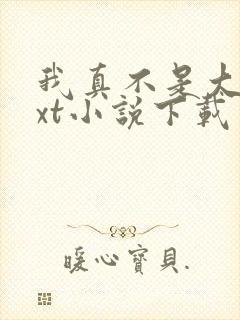 我真不是大
xt小說下載
暖心寶貝.